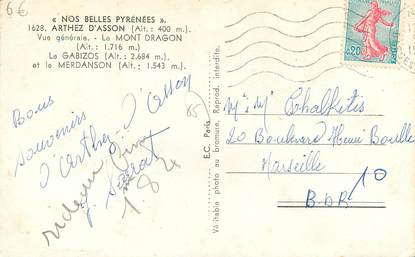 6€
« NOS BELLES PYRENÉES ».
1628. ARTHEZ D'ASSON (Alt : 400 m.)
Vue générale. - Le MONT DRAGON
(Alt. : 1.716 m.)
Le GABIZOS (Alt. : 2.684 m.)
et le MERDANSON (Alt. : 1.543 m.)
Bons
souvenirs
d'Arthez d'Asson
rideau
184
E.C. Paris
Véritable photo au bromure, Reprod. interdite.
0,20
M. & Mme Chalkitis
20 Boulevard Henri
Marseille
B.d.R. 10